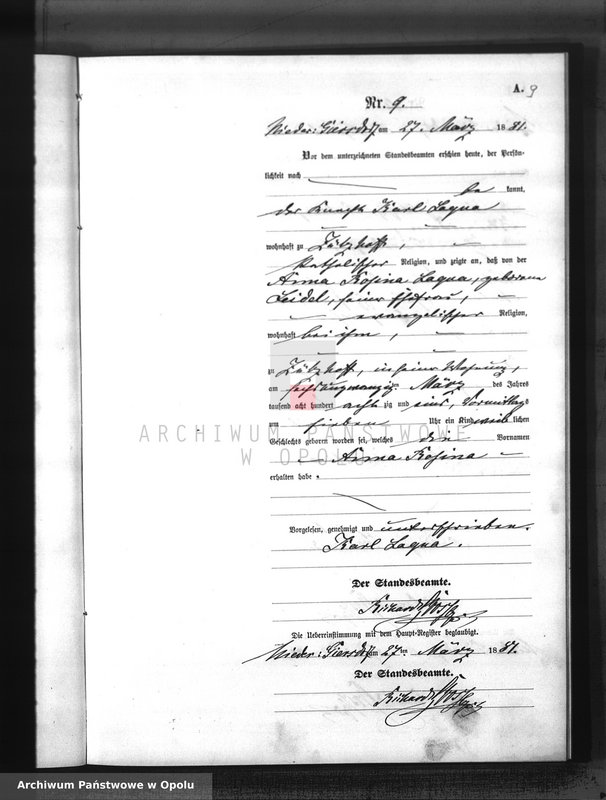 A. 9
Nr. 9.
Nieder-Giersdorf am 27. März 1881.
Vor dem unterzeichneten Standesbeamten erschien heute, der Persön-
lichkeit nach
be kannt,
der Knecht Karl Laqua
wohnhaft zu
katholischer Religion, und zeigte an, daß von der
Anna Rosina Laqua, geborene
Seidel, seiner Ehefrau,
evangelischer Religion,
wohnhaft bei ihm,
zu in seiner Wohnung,
am sechsundzwanzigsten März des Jahres
tausend acht hundert acht zig und eins, Vormittags
um sieben Uhr ein Kind weib lichen
Geschlechts geboren worden sei, welches die Vornamen
Anna Rosina
erhalten habe.
Vorgelesen, genehmigt und unterschrieben.
Karl Laqua.
Der Standesbeamte.
Die Uebereinstimmung mit dem Haupt-Register beglaubigt.
Nieder-Giersdorf am 27ten März 1881.
Der Standesbeamte.
ARCHIWUM PAŃSTWOWE
W OPOLU
Archiwum Państwowe w Opolu